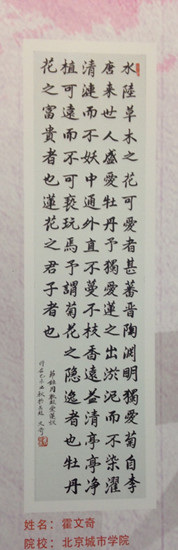 水陸草木之花可愛者甚蕃晋陶渊明獨愛菊自李
唐来世人盛愛牡丹予獨愛蓮之出淤泥而不染濯
清漣而不妖中通外直不蔓不枝香遠益清亭亭净
植可遠而不可亵玩焉予謂菊花之隐逸者也牡丹
花之富貴者也蓮花之君子者也
周敦頤愛蓮説
文奇
姓名：霍文奇
院校：北京城市学院